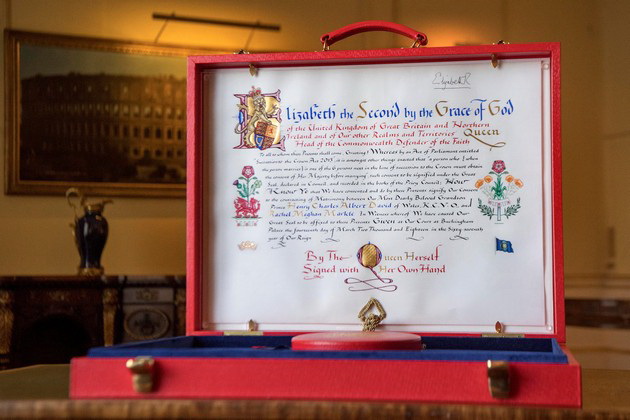 Elizabeth R
Elizabeth the Second by the Grace of God
of the United Kingdom of Great Britain and Northern
Ireland and of Our other Realms and Territories Queen
Head of the Commonwealth Defender of the Faith
To all to whom these Presents shall come Greeting! Whereas by an Act of Parliament entitled
Succession to the Crown Act 2013, it is amongst other things enacted that "a person who (when
the person marries) is one of the 6 persons next in the line of succession to the Crown must obtain
the consent of Her Majesty before marrying" such consent to be signified under the Great
Seal, declared in Council, and recorded in the books of the Privy Council; Now
Know Ye that We have consented and do by these Presents signify Our Consent
to the contracting of Matrimony between Our Most Dearly Beloved Grandson
Prince Henry Charles Albert David of Wales, K.C.V.O., and
Rachel Meghan Markle. In Witness whereof We have caused Our
Great Seal to be affixed to these Presents Given at Our Court at Buckingham
Palace the fourteenth day of March Two Thousand and Eighteen in the Sixty-seventh
year of Our Reign.
By The Queen Herself
Signed with Her Own Hand